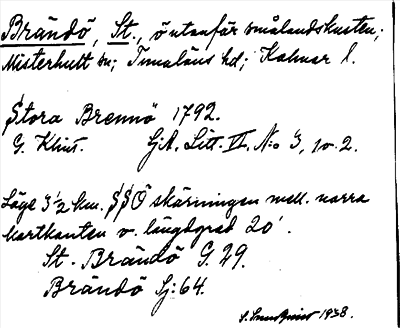 Brändö, St., ö utanför smålandskusten;
Misterhult sn; Tunaläns hd; Kalmar l.
Stora Brennö 1792.
G. Klint. GjA. Litt. VI. No 3, 10-2.
Läge 3 1/2 km. SSÖ skärningen mell. norra
kartkanten o. längdgrad 20'.
St. Brändö G. 29.
Brändö Sj: 64.
1938.